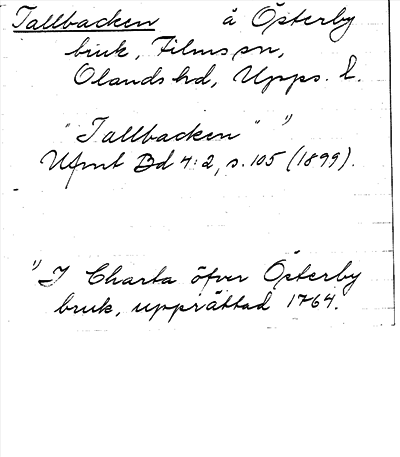 Tallbacken å Österby
bruk, Films sn,
Olands hd, Upps. l.
"Tallbacken" 1)
Ufmt Bd 4:2, s. 105 (1899).
1) I Charta öfver Österby
bruk, upprättad 1764.